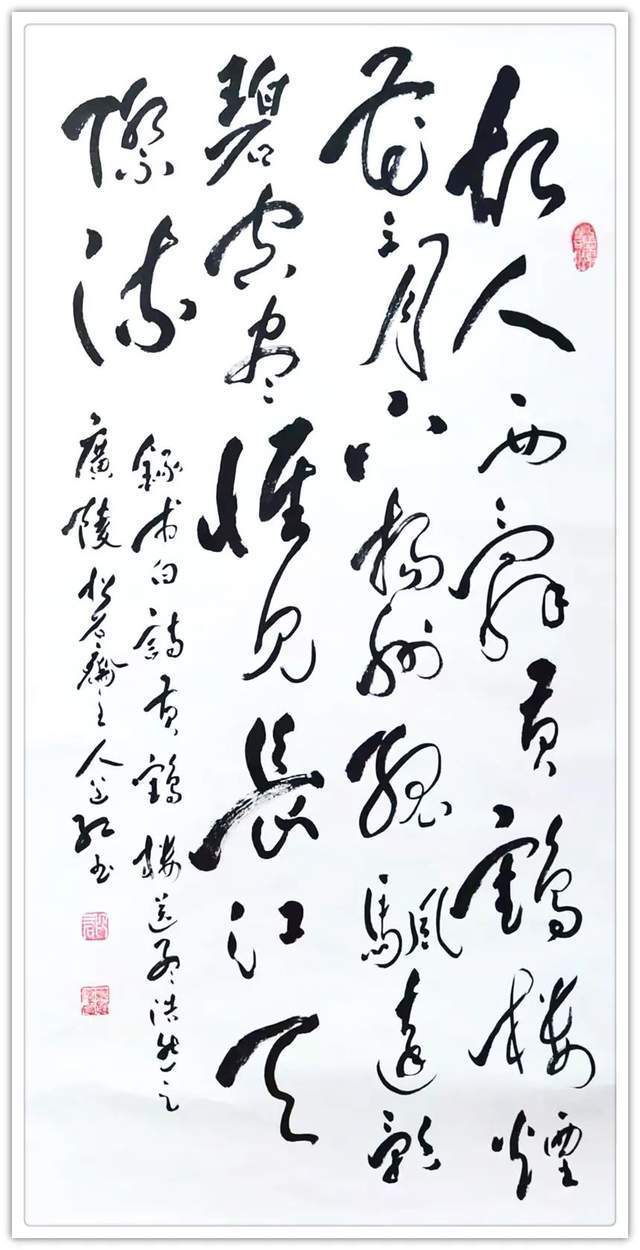 故人西辭黃鶴樓煙
花三月下揚州孤颿遠影
碧空盡惟見長江天
際流
錄李白詩黃鶴樓送孟浩然之
廣陵松齋主人书